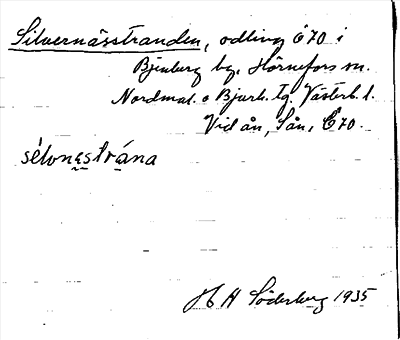 Silvernässtranden, odling C70 i
Bjenberg by, Hörnefors sn.
Nordmal. o Bjurh. tg. Västerb. l.
Vid ån, S ån, C70.
sélvnɛstrána
H H Söderberg 1935